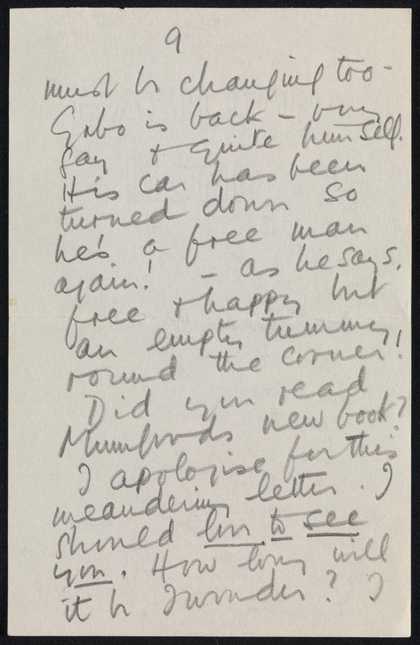 9
must be changing too -
Gabo is back - very
gay & quite himself.
His car has been
turned down so
he's a free man
again! - as he says,
free & happy but
an empty tummy
round the corner!
Did you read
Mumfords new book?
I apologise for this
meandering letter. I
should love to see
you. How long will
it be I wonder? I